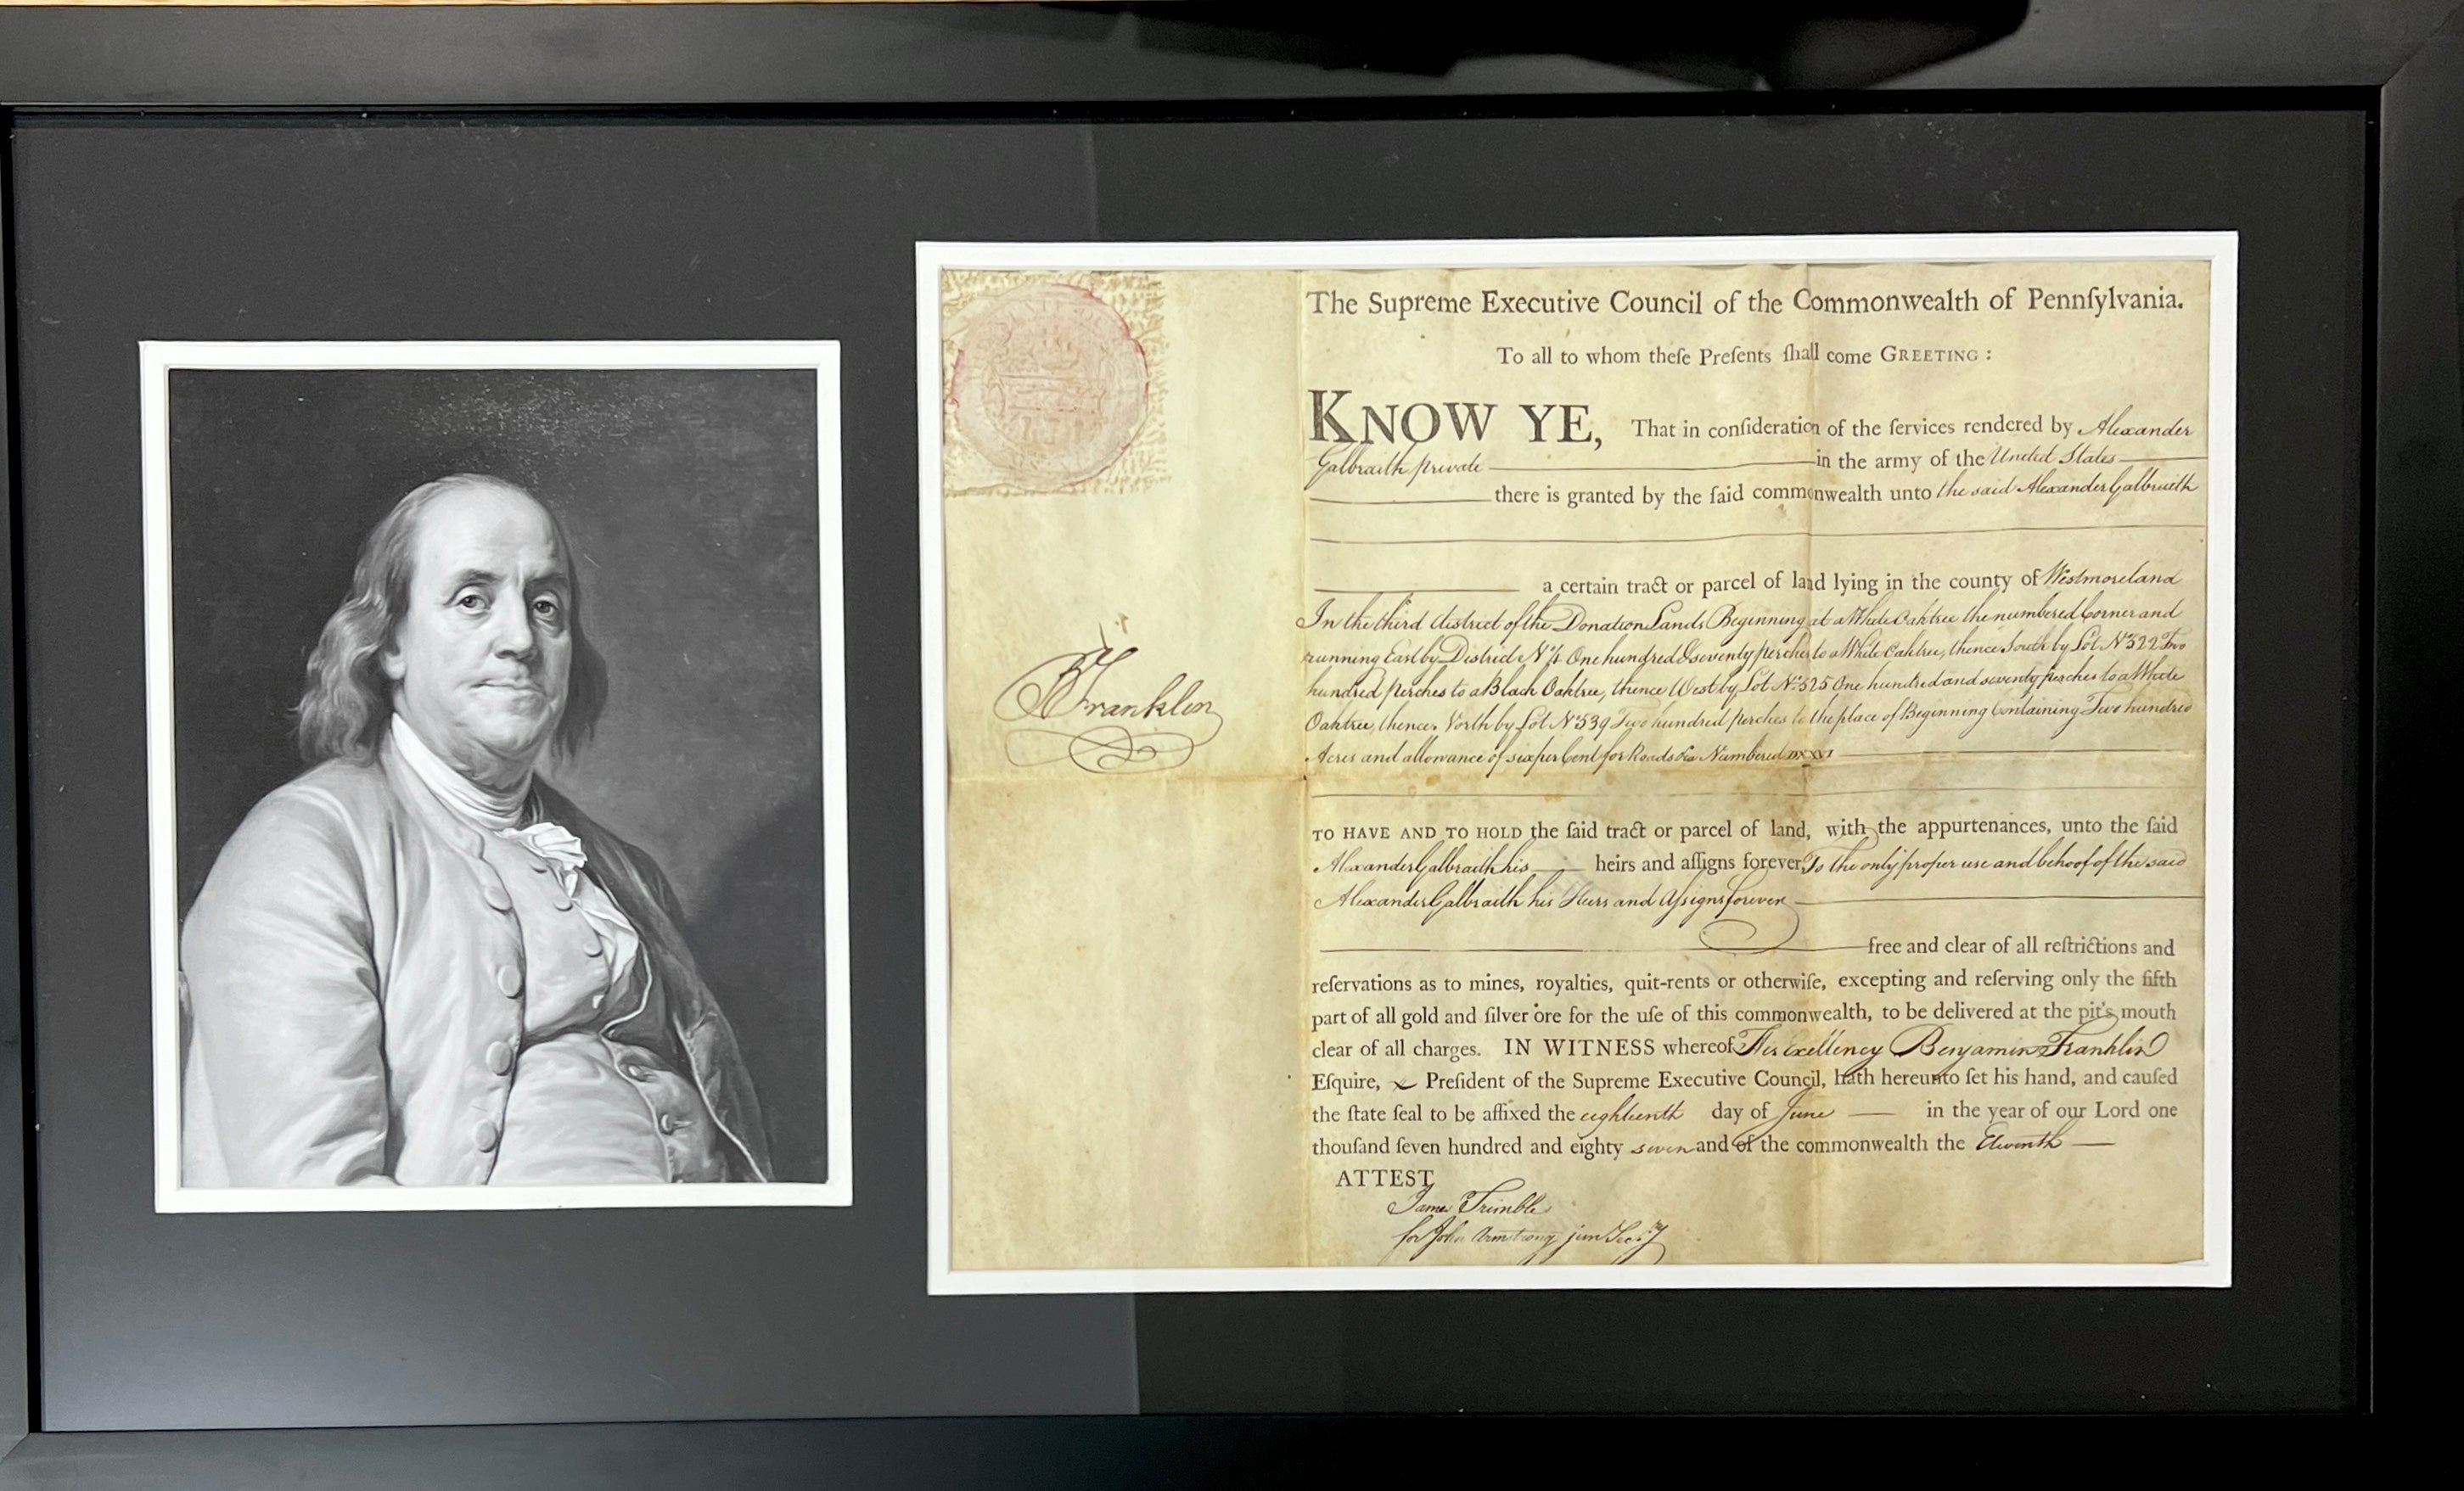 The Supreme Executive Council of the Commonwealth of Pennſylvania.
To all to whom theſe Preſents ſhall come GREETING :
KNOW YE, That in conſideration of the ſervices rendered by Alexander
Galbraith private in the army of the United States
there is granted by the ſaid commonwealth unto the said Alexander Galbraith
a certain tract or parcel of land lying in the county of Westmoreland
In the third district of the Donation Lands Beginning at a White Oaktree the numbered Corner and
running East by District No. 4 One hundred & seventy perches to a White Oaktree, thence South by Lot No. 522 Two
hundred perches to a Black Oaktree, thence West by Lot No. 525 One hundred and seventy perches to a White
Oaktree, thence North by Lot No. 539 Two hundred perches to the place of Beginning Containing Two hundred
Acres and allowance of six per Cent for Roads &ca Numbered
B Franklin
TO HAVE AND TO HOLD the ſaid tract or parcel of land, with the appurtenances, unto the ſaid
Alexander Galbraith his heirs and aſſigns forever, To the only proper use and behoof of the said
Alexander Galbraith his Heirs and Aſsigns forever
free and clear of all reſtrictions and
reſervations as to mines, royalties, quit-rents or otherwiſe, excepting and reſerving only the fifth
part of all gold and ſilver ore for the uſe of this commonwealth, to be delivered at the pit's mouth
clear of all charges. IN WITNESS whereof His Exellency Benjamin Franklin
Eſquire, Preſident of the Supreme Executive Council, hath hereunto ſet his hand, and cauſed
the ſtate ſeal to be affixed the eighteenth day of June in the year of our Lord one
thouſand ſeven hundred and eighty seven and of the commonwealth the Eleventh
ATTEST
James Trimble
for John Armstrong jun Secy